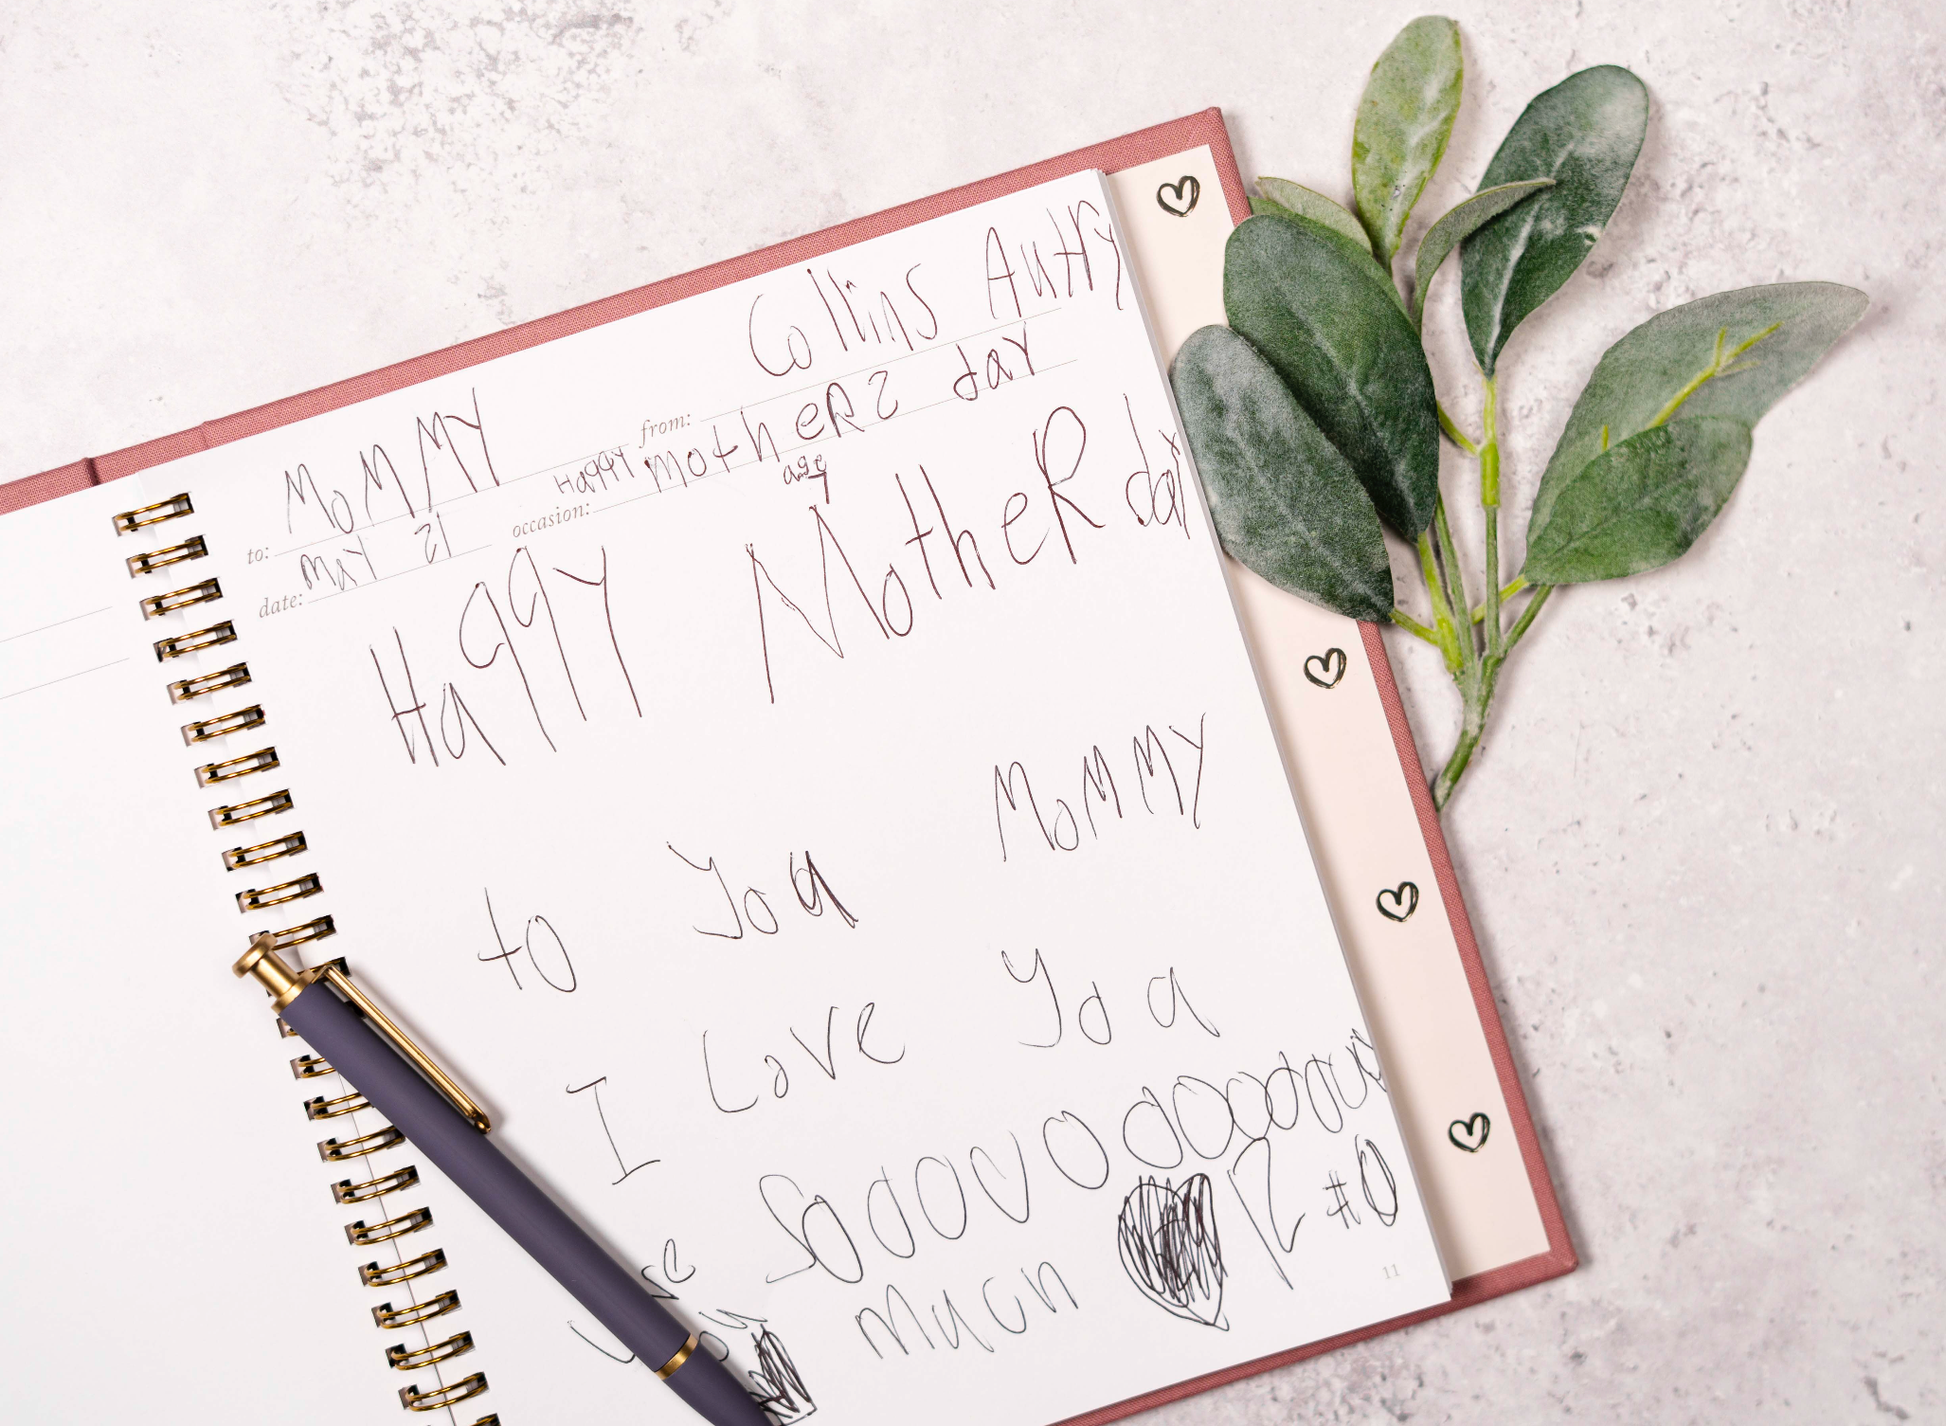 to: MoMMY from: Collins Autry
date: May 21 occasion: Happy motheRs day
Happy MotheR day
to You MoMMY
I Love You
Soooooooooooo
mucn
#0
11